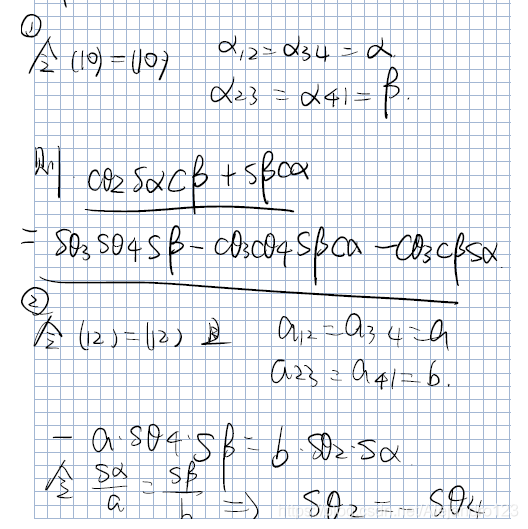 ①
令 (10)=(10) α12=α34=α.
α23=α41=β.
则 cθ2sαcβ+sβcα
= sθ3sθ4sβ-cθ3cθ4sβcα-cθ3cβsα
②
令 (12)=(12) 且 a12=a34=a
a23=a41=b.
- a·sθ4·sβ=b·sθ2·sα
令 sα/a = sβ/b => sθ2= sθ4